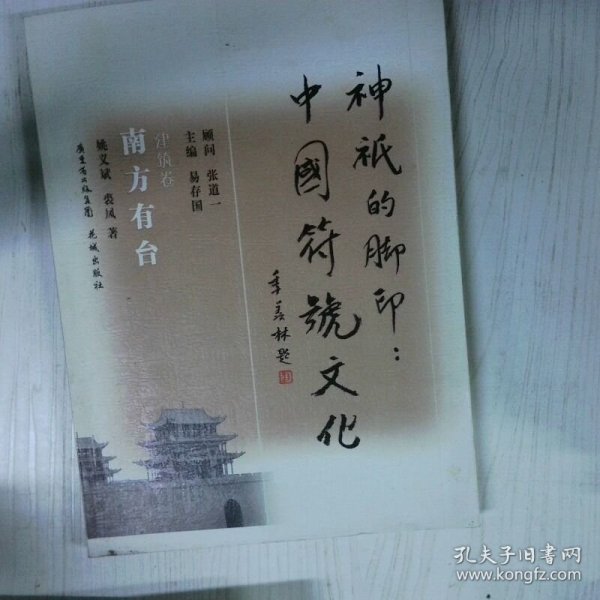 神祇的脚印：
中國符號文化
季羡林题
顾问 张道一
主编 易存国
建筑卷
南方有台
姚义斌 裴凤 著
广东省出版集团 花城出版社
孔夫子旧书网
www.kongfz.com